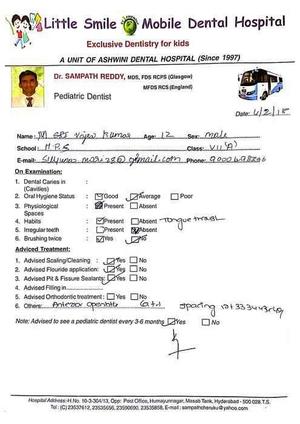 Little Smile Mobile Dental Hospital
Exclusive Dentistry for kids
A UNIT OF ASHWINI DENTAL HOSPITAL (Since 1997)
Dr. SAMPATH REDDY, MDS, FDS RCPS (Glasgow)
MFDS RCS (England)
Pediatric Dentist
Date:
Name: Kumar Age: 12 Sex: male
School: H.P.S Class: VII
E-mail: Phone:
On Examination:
1. Dental Caries in :
(Cavities)
2. Oral Hygiene Status : Good Average Poor
3. Physiological : Present Absent
Spaces
4. Habits : Present Absent Tongue thrust
5. Irregular teeth : Present Absent
6. Brushing twice : Yes No
Adviced Treatment:
1. Advised Scaling/Cleaning : Yes No
2. Advised Flouride application: Yes No
3. Advised Pit & Fissure Sealants: Yes No
4. Advised Filling in
5. Advised Orthodontic treatment : Yes No
6. Others: Anterior openbite spacing
Note: Advised to see a pediatric dentist every 3-6 months Yes No
Hospital Address:-H.No. 10-3-304/13, Opp: Post Office, Humayunnagar, Masab Tank, Hyderabad - 500 028 T.S.
Tel: (C) 23537612, 23535656, 23590690, 23535858, E-mail : sampathcheruku@yahoo.com